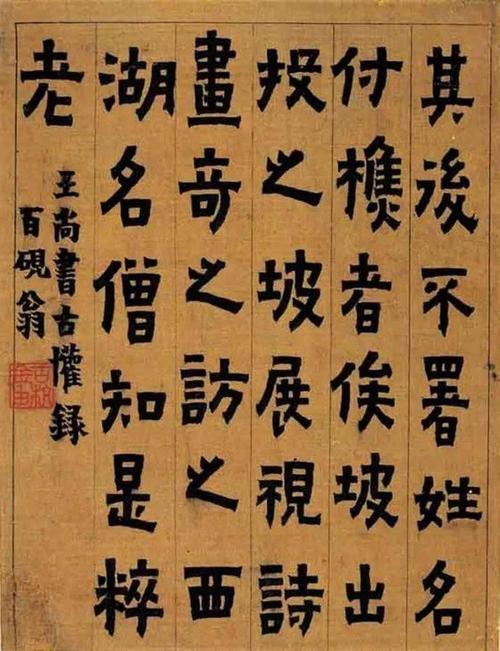 其後不署姓名
付樵者俟坡出
投之坡展視詩
畫奇之訪之西
湖名僧知是粹
老
王尚書古懽録
百硯翁